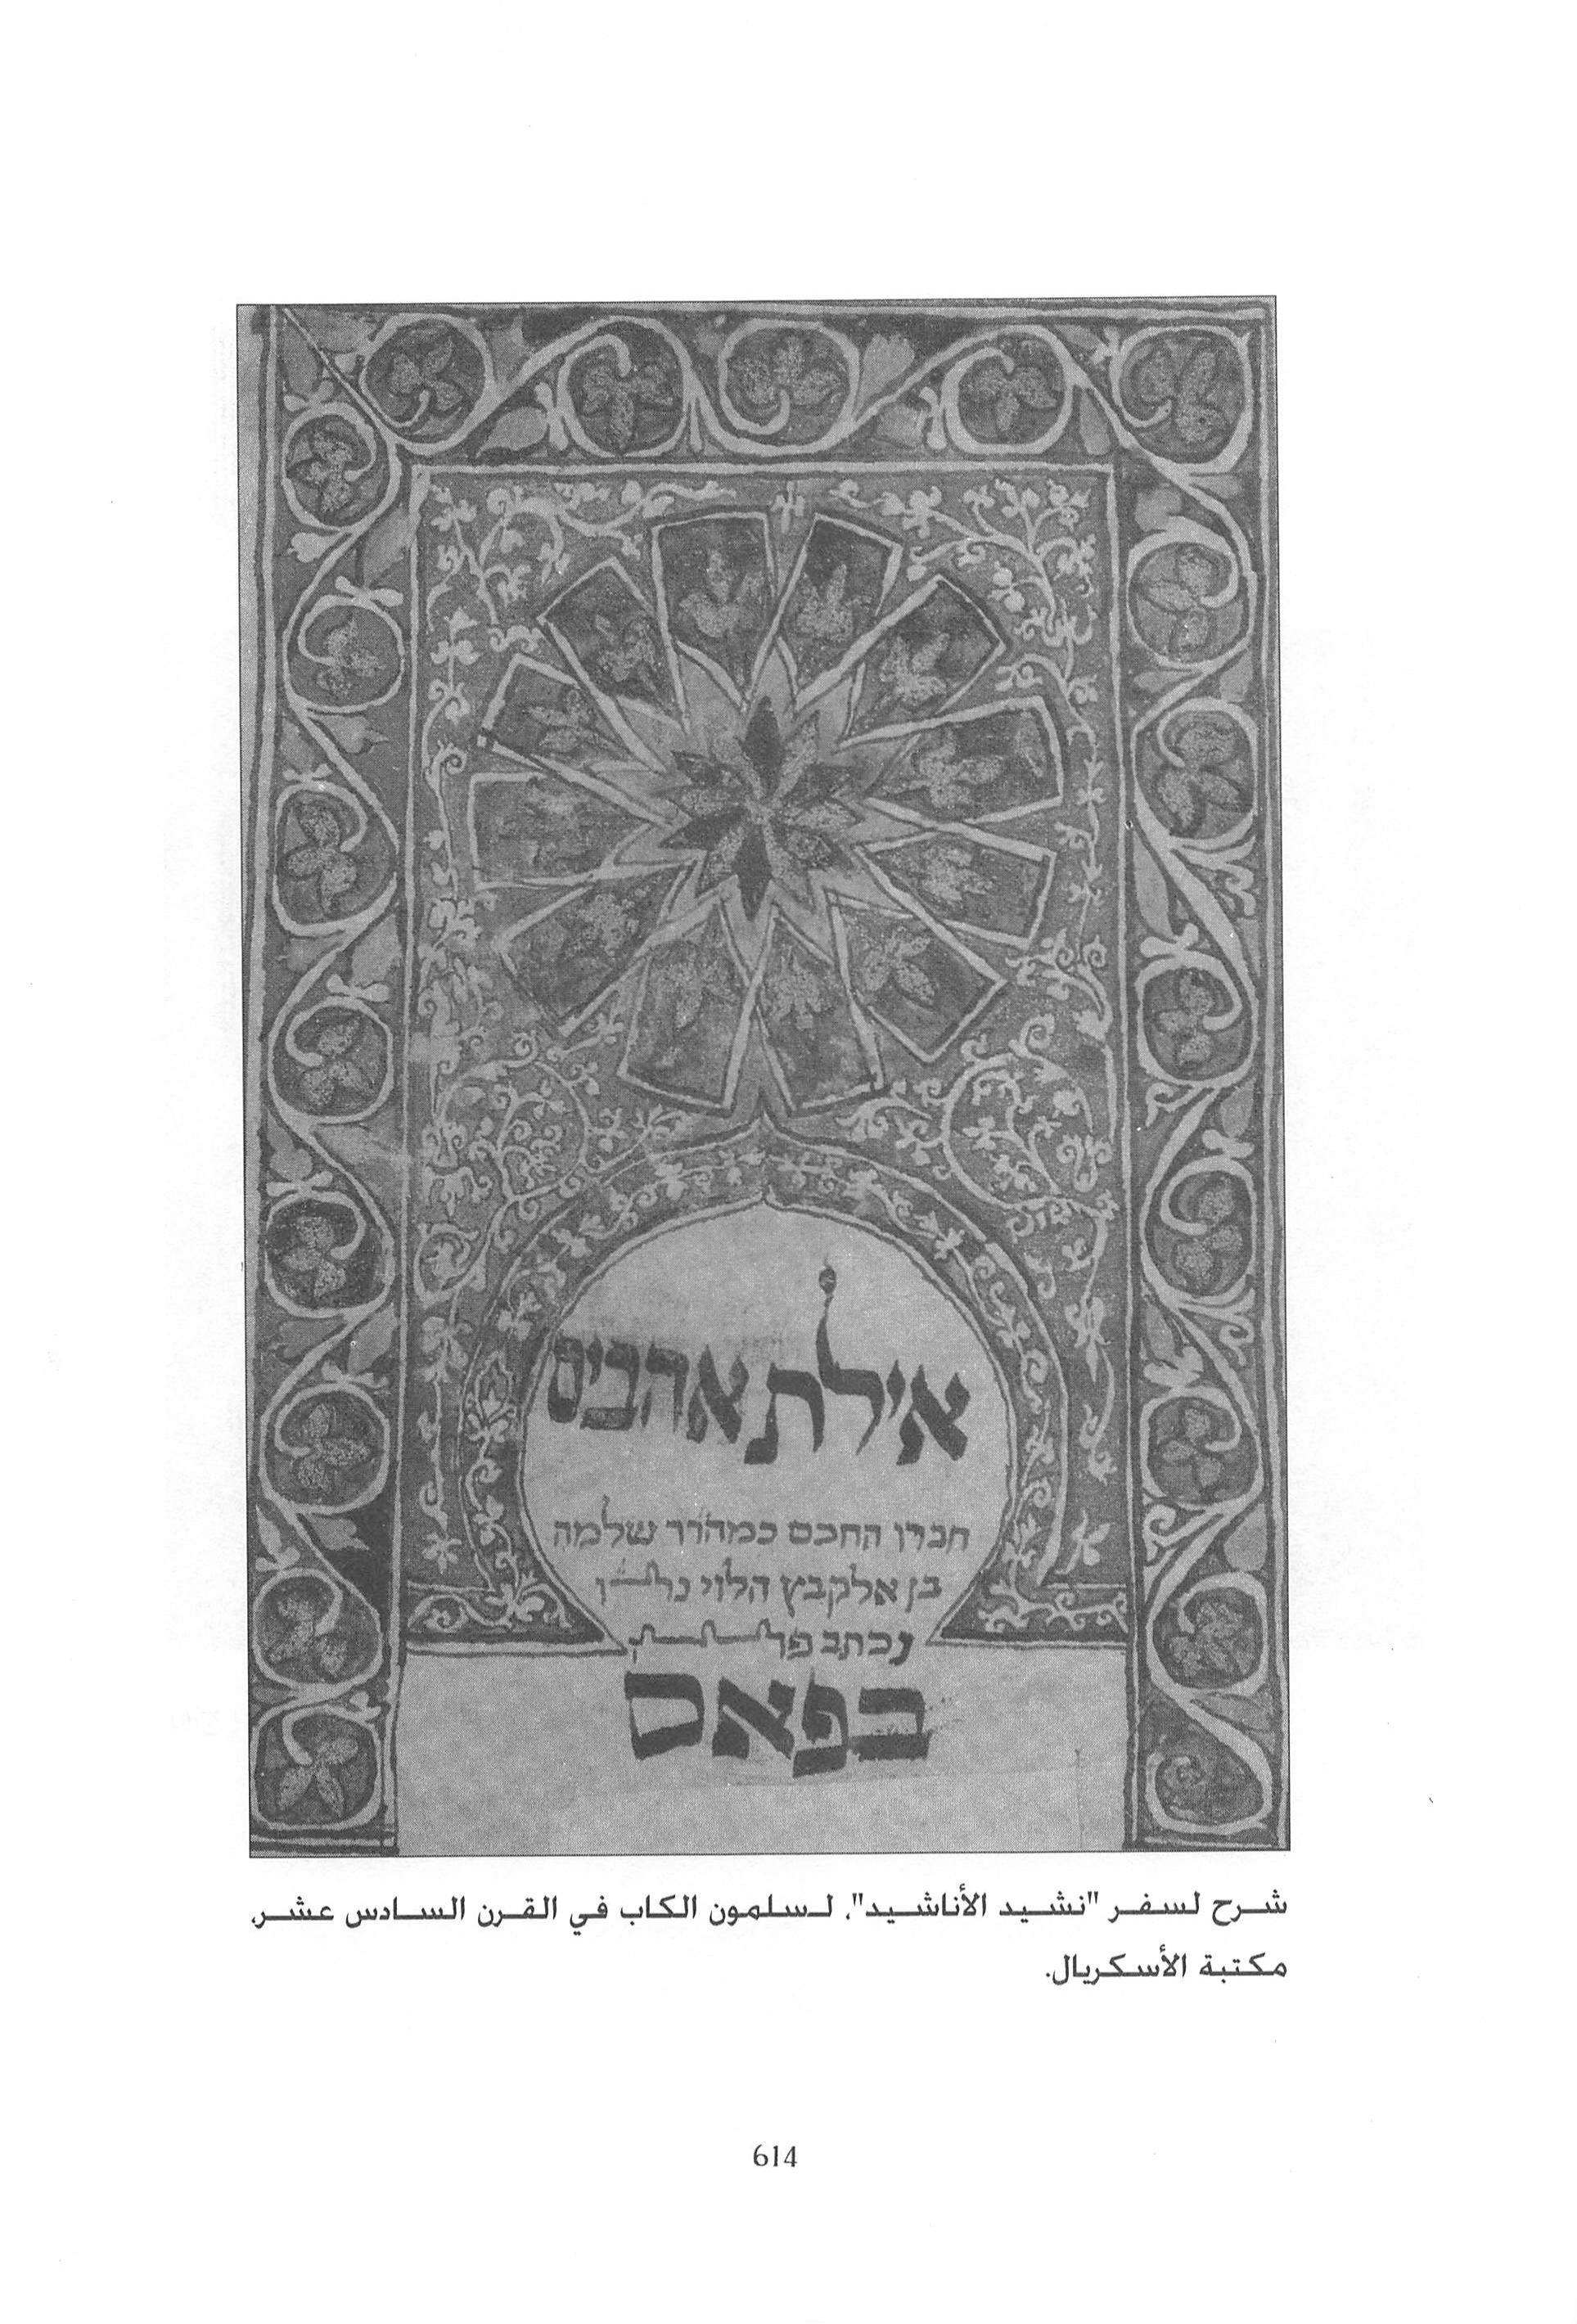 אילת אהבים
חברו החכם כמהרר שלמה
בן אלקבץ הלוי
נכתב
בפאס
شرح لسفر "نشيد الأناشيد"، لسلمون الكاب في القرن السادس عشر،
مكتبة الأسكريال.
614